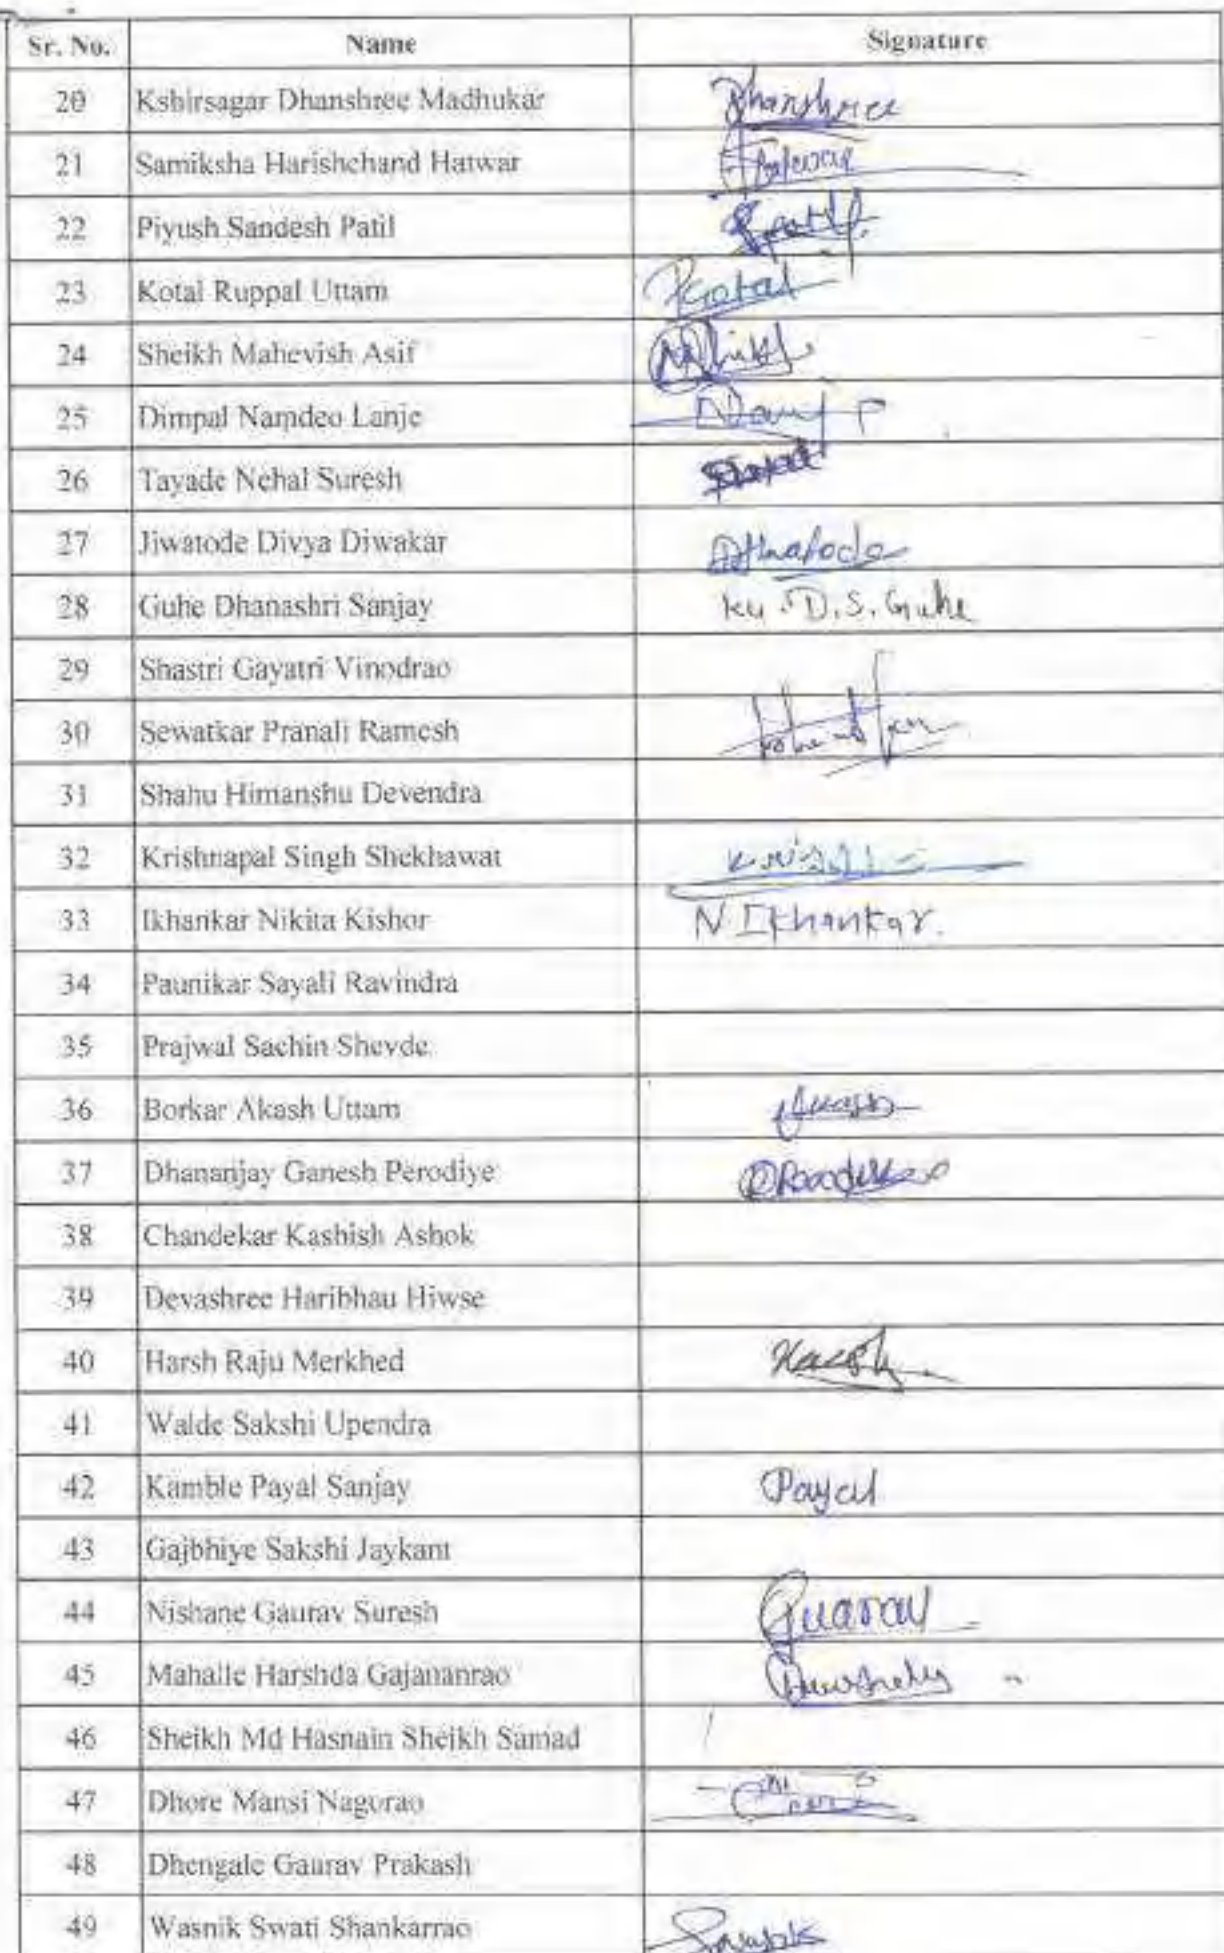 Sr. No. Name Signature
20 Kshirsagar Dhanshree Madhukar Dhanshree
21 Samiksha Harishchand Hatwar
22 Piyush Sandesh Patil
23 Kotal Ruppal Uttam
24 Sheikh Mahevish Asif
25 Dimpal Namdeo Lanje
26 Tayade Nehal Suresh
27 Jiwatode Divya Diwakar
28 Guhe Dhanashri Sanjay Ku. D.S. Guhe
29 Shastri Gayatri Vinodrao
30 Sewatkar Pranali Ramesh
31 Shahu Himanshu Devendra
32 Krishnapal Singh Shekhawat
33 Ikhankar Nikita Kishor N. Ikhankar.
34 Paunikar Sayali Ravindra
35 Prajwal Sachin Shevde
36 Borkar Akash Uttam
37 Dhananjay Ganesh Perodiye
38 Chandekar Kashish Ashok
39 Devashree Haribhau Hiwse
40 Harsh Raju Merkhed Harsh
41 Walde Sakshi Upendra
42 Kamble Payal Sanjay Payal
43 Gajbhiye Sakshi Jaykant
44 Nishane Gaurav Suresh
45 Mahalle Harshda Gajananrao
46 Sheikh Md Hasnain Sheikh Samad
47 Dhore Mansi Nagorao
48 Dhengale Gaurav Prakash
49 Wasnik Swati Shankarrao